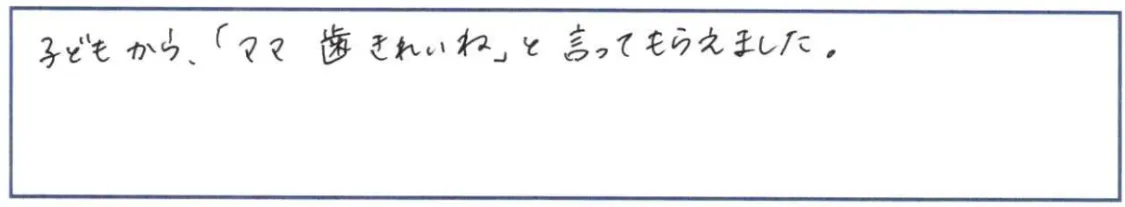 子どもから、「ママ 歯きれいね」と言ってもらえました。